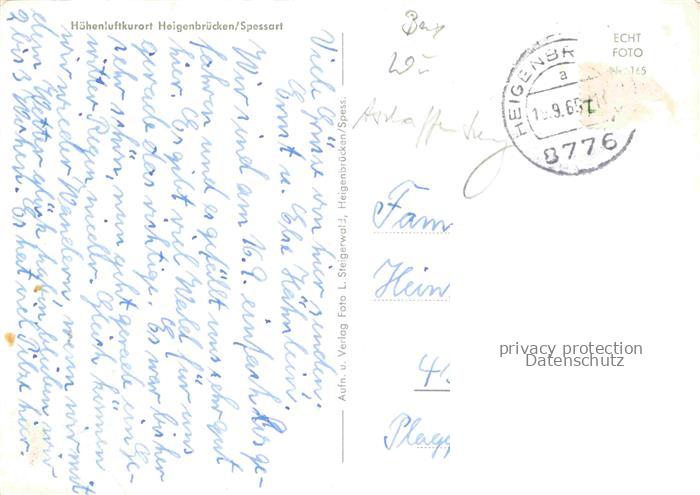 Höhenluftkurort Heigenbrücken/Spessart
Viele Grüsse von hier senden.
Ernst u. Else Hähnlein.
Wir sind am 16.9. einfach losge-
fahren und es gefällt uns sehr gut
hier. Es gibt viel Wald für uns
gerade das richtige. Es war bisher
sehr schön, nun geht gerade ein Ge-
witter Regen nieder. Gleich können
wir wieder Wandern, wenn wir mit
dem Wetter Glück haben bleiben wir
Es hat viel Pilze hier.
Aufn. u. Verlag Foto L. Steigerwald, Heigenbrücken/Spess.
Aschaffenburg
ECHT
FOTO
HEIGENBR
a
9.65
8776
Fam
Hein
Plagg
privacy protection
Datenschutz